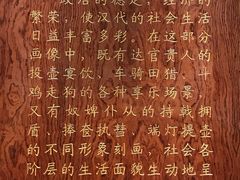 政治的稳定，经济的
繁荣，使汉代的社会生活
日益丰富多彩。在这部分
画像中，达官贵人的
投壶宴饮、车骑田猎、斗
鸡走狗的尽享乐场景，
又有奴婢仆从的持戟拥
盾、捧奁执彗、端灯提壶
的不同形象刻画，社会各
阶层的生活面貌生动地呈